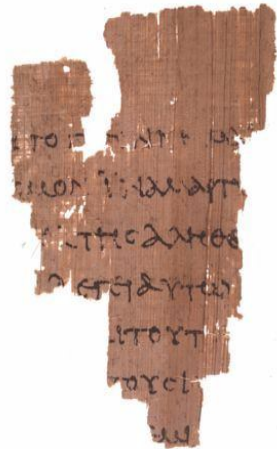 ΤΟ
ϹΜΟΝ ΙΝΑ ΜΑΡΤΥ
Κ ΤΗϹ ΑΛΗΘΕ
ΛΕΓΕΙ ΑΥΤΩ
ΑΙ ΤΟΥΤ
ΤΟΥϹ Ι